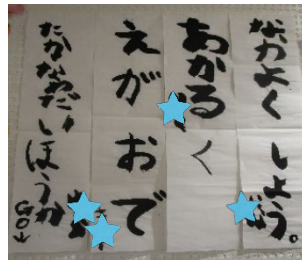 なかよく しよう。
あかるく
えがおで
たかなわだい ほうか GO↓